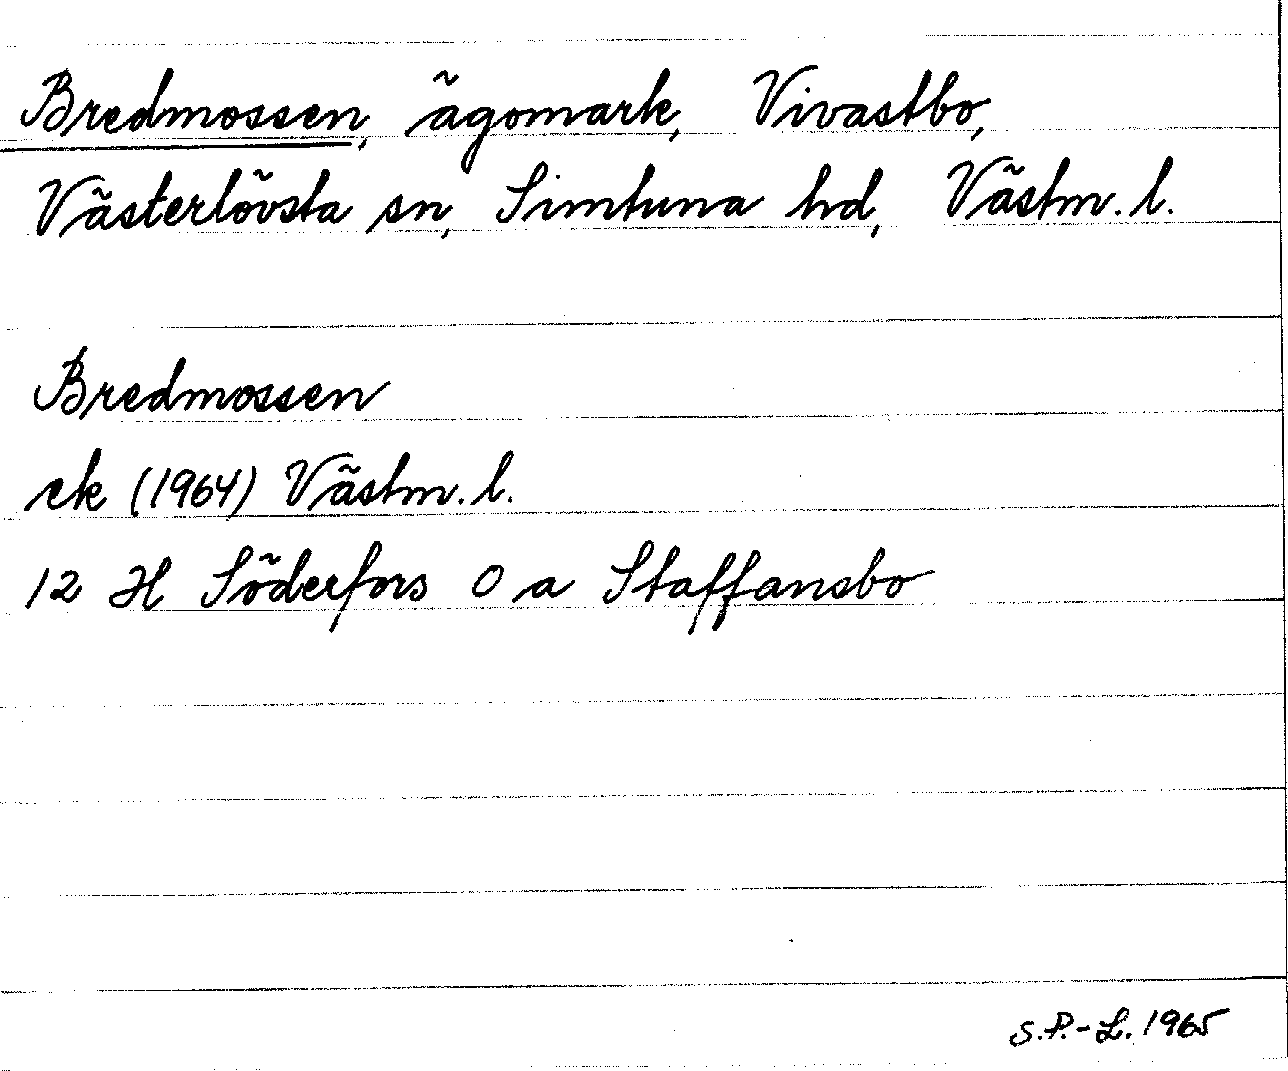 Bredmossen, ägomark, Vivastbo,
Västerlövsta sn, Simtuna hd, Västm. l.
Bredmossen
ek (1964) Västm. l.
12 H Söderfors O a Staffansbo
S.P.-L. 1965